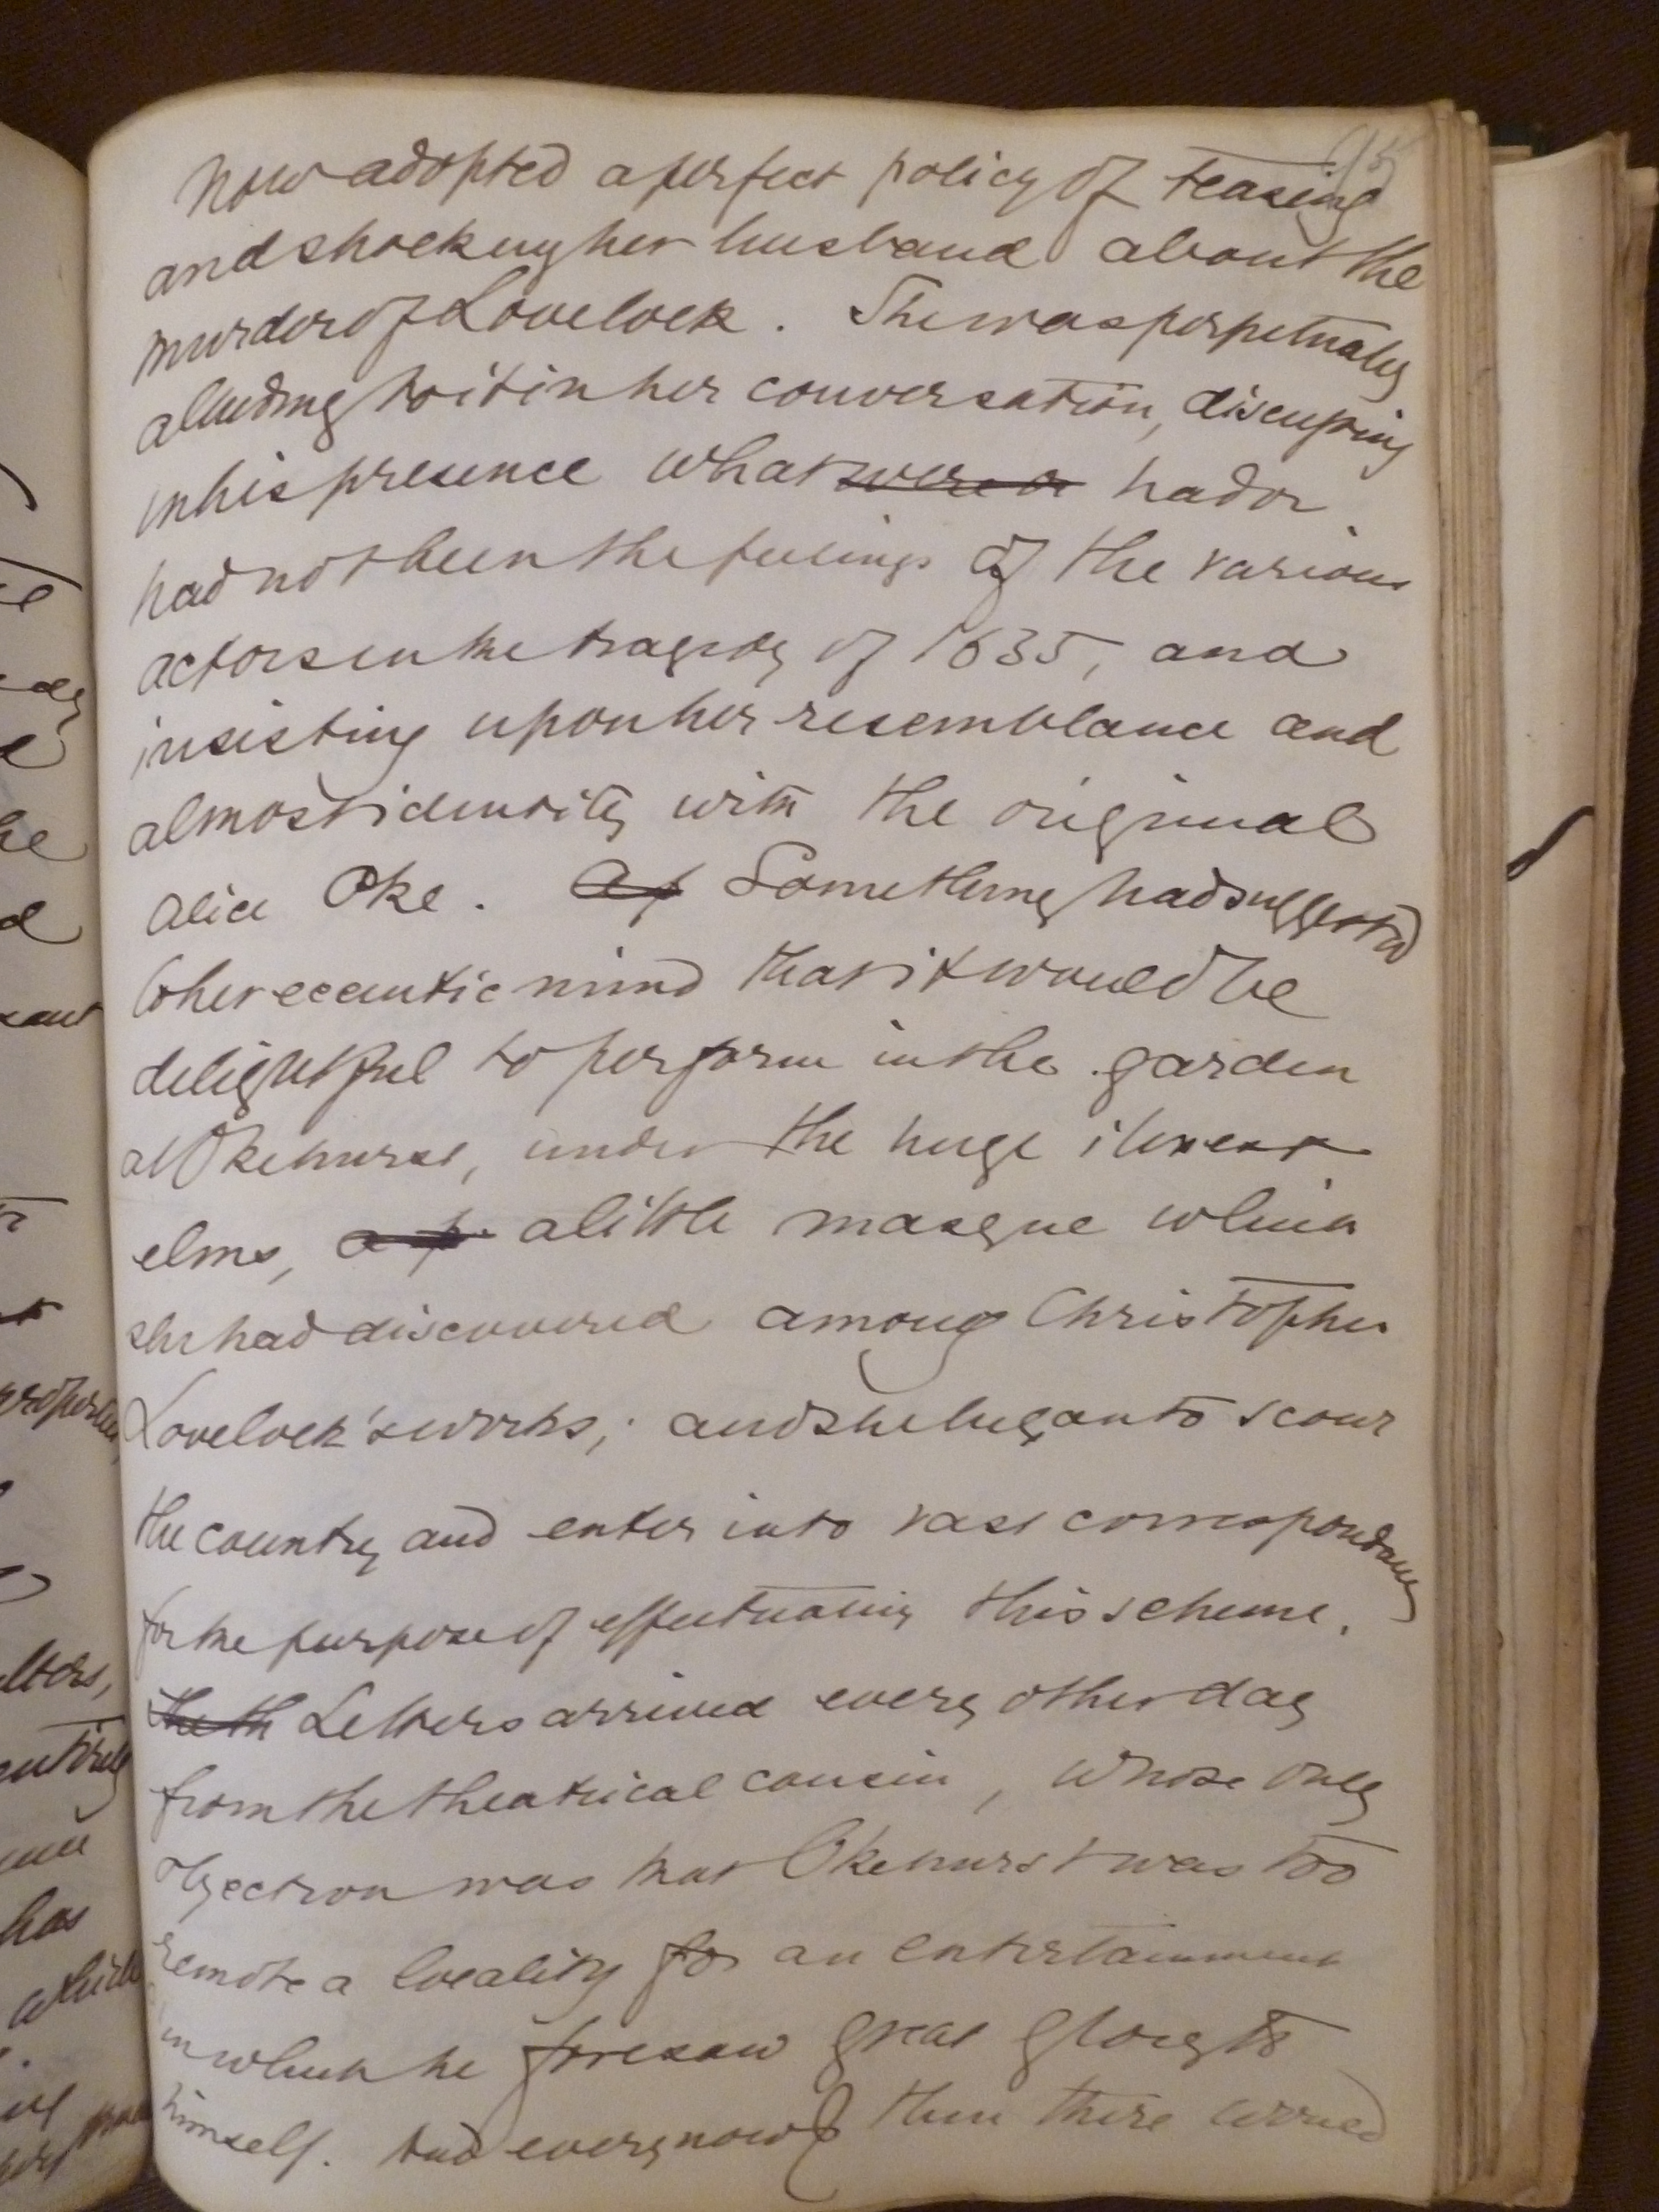 95
now adopted a perfect policy of teasing
and shocking her husband about the
murder of Lovelock. She was perpetually
alluding to it in her conversation, discussing
in his presence what were or had or
had not been the feelings of the various
actors in the tragedy of 1635, and
insisting upon her resemblance and
almost identity with the original
Alice Oke. Something had suggested
to her eccentric mind that it would be
delightful to perform in the garden
at Okehurst, under the huge ilexes &
elms, a little masque which
she had discovered among Christopher
Lovelock's works; and she began to scour
the country and enter into vast correspondence
for the purpose of effectuating this scheme.
the th Letters arrived every other day
from the theatrical cousin, whose only
objection was that Okehurst was too
remote a locality for an entertainment
in which he foresaw great glory to
himself. And every now & then there arrived